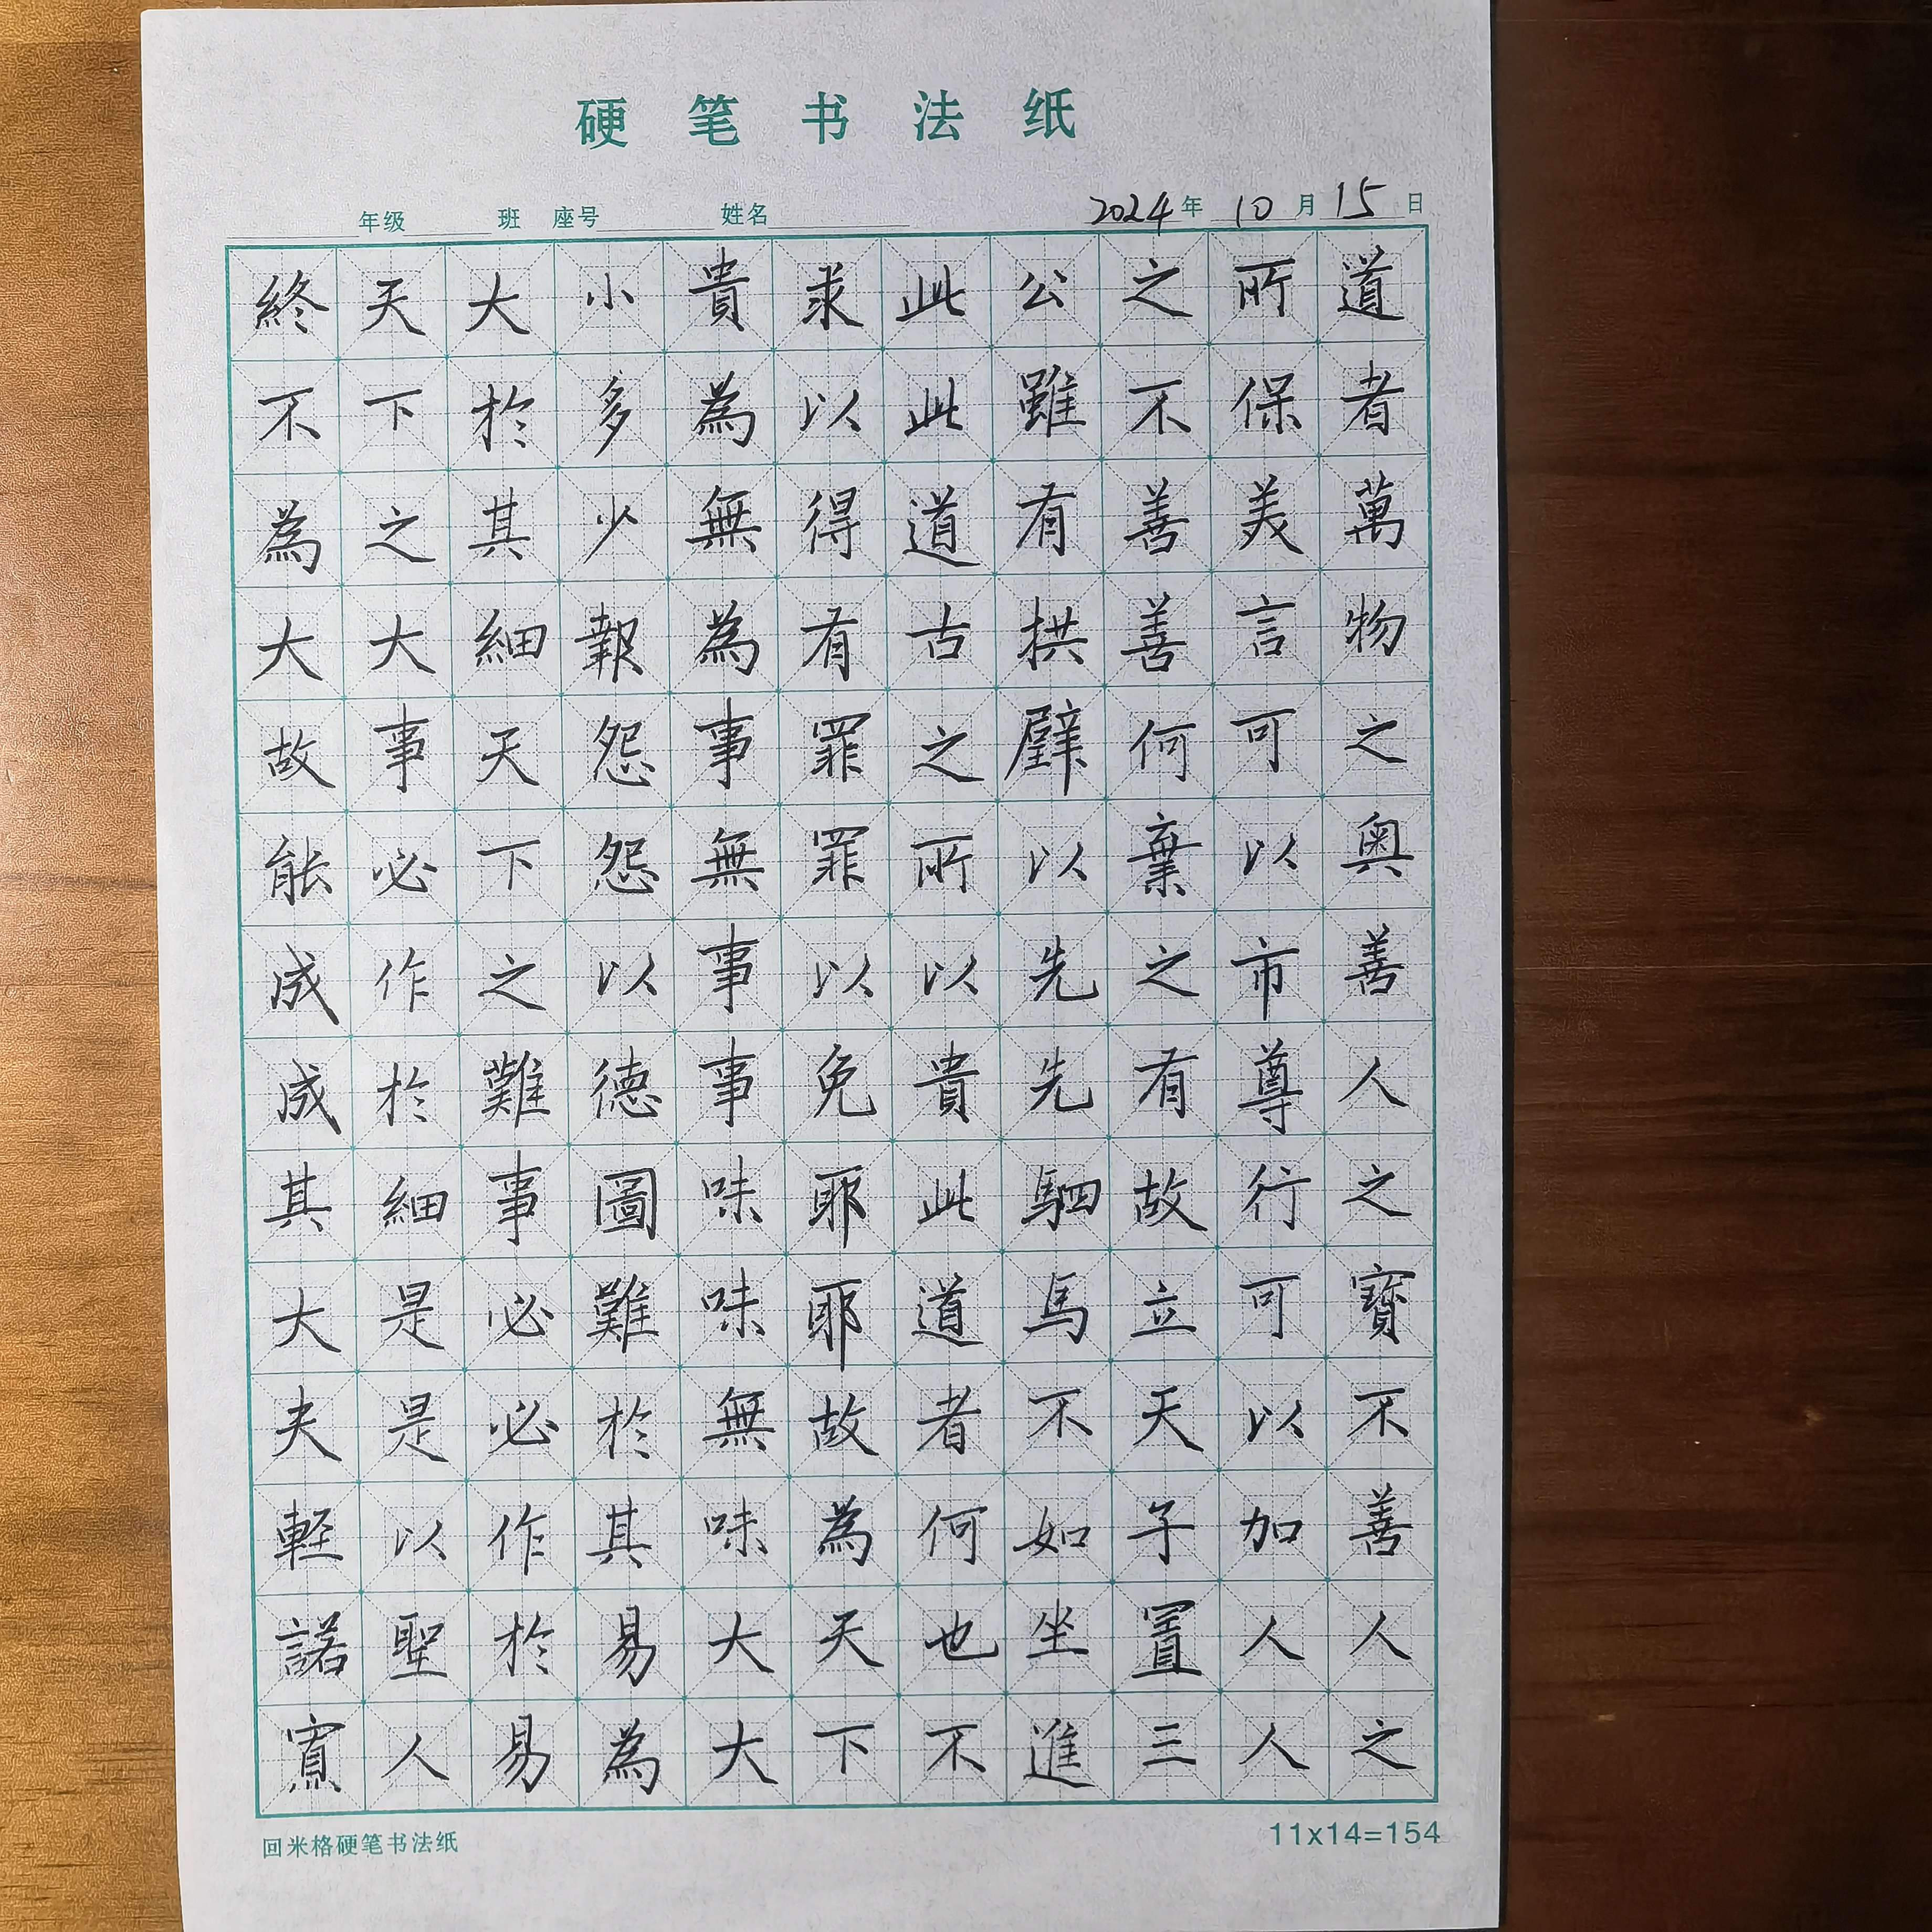 硬笔书法纸
年级 班 座号 姓名 2024年10月15日
道者萬物之奥善人之寳不善人之
所保美言可以市尊行可以加人人
之不善善何棄之有故立天子置三
公雖有拱璧以先先駟馬不如坐進
此此道古之所以貴此道者何也不
求以得有罪罪以免耶耶故為天下
貴為無為事無事事味味無味大大
小多少報怨怨以德圖難於其易為
大於其細天下之難事必必作於易
天下之大事必作於細是是以聖人
終不為大故能成成其大夫輕諾寡
回米格硬笔书法纸 11x14=154